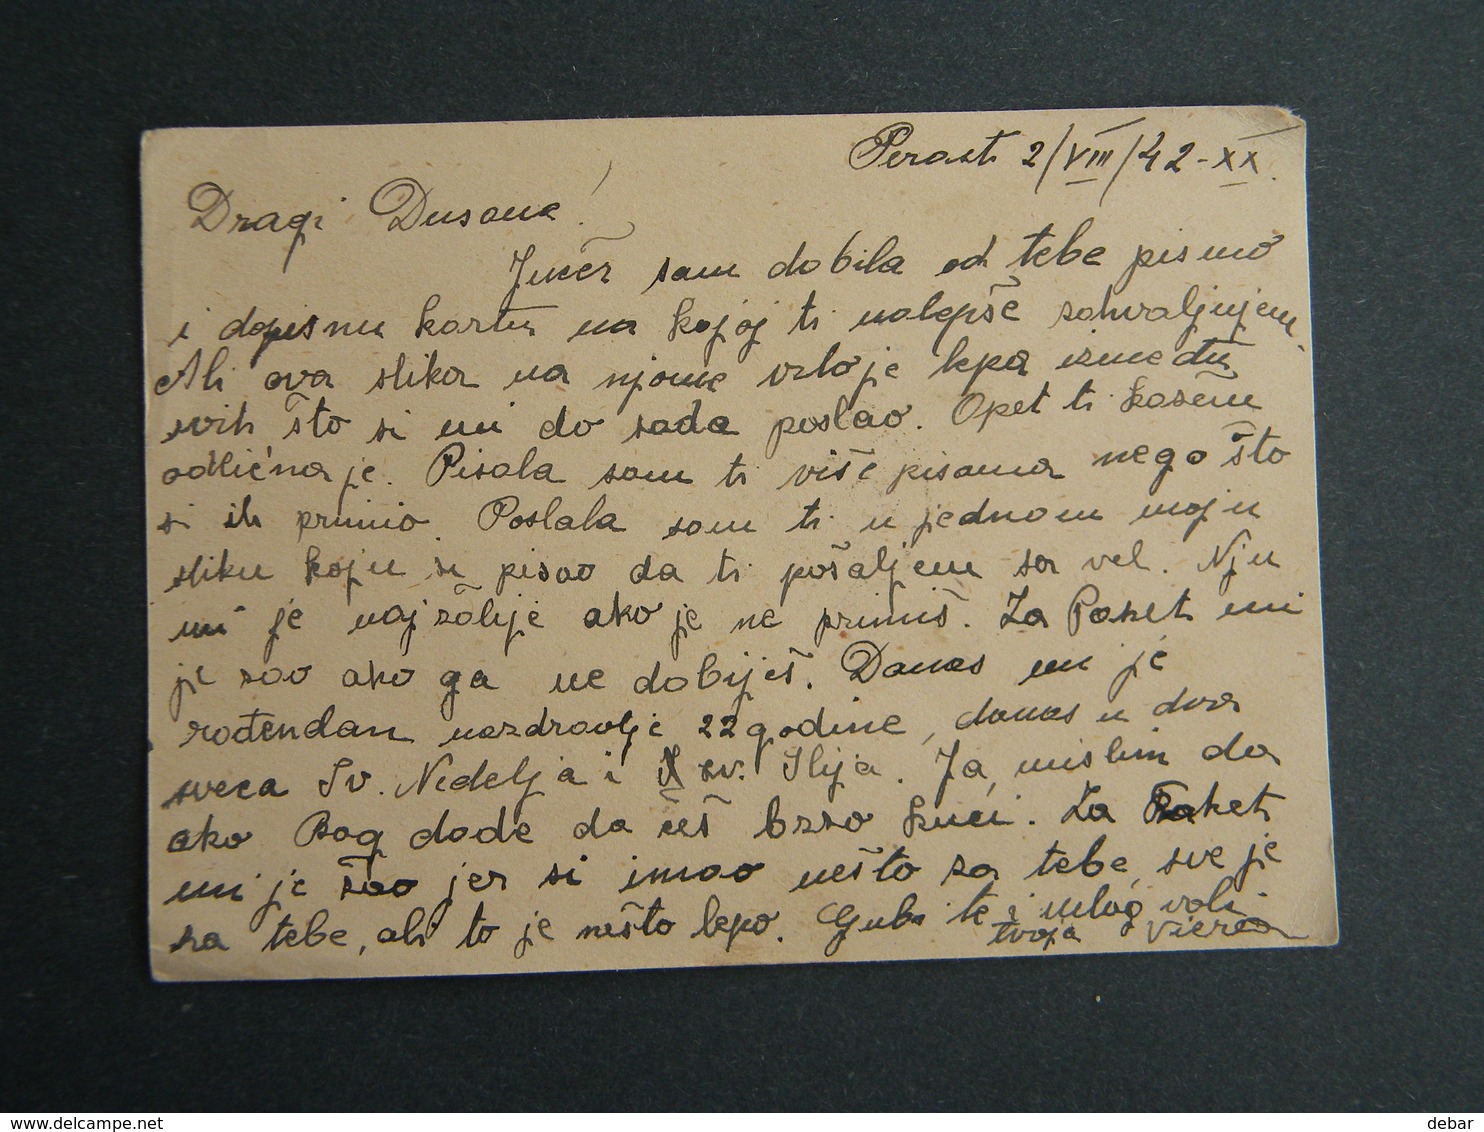 Perast 2/VIII/42-XX.
Dragi Dusane!
Jučer sam dobila od tebe pismo
i dopisnu kartu na kojoj ti nalepše zahvaljujem.
Ali ova slika na njome vrlo je lepa između
svih što si mi do sada poslao. Opet ti kažem
odlična je. Pisala sam ti više pisama nego što
si ih primio. Poslala sam ti u jednom moju
sliku koju si pisao da ti pošaljem sa vel. Nju
mi je najžalije ako je ne primiš. Za Paket mi
je žao ako ga ne dobiješ. Danas mi je
rođendan nazdravlje 22 godine, danas u dva
sveca Sv. Nedelja i sv. Ilija. Ja mislim da
ako Bog dade da ćeš brzo kući. Za Paket
mi je žao jer si imao nešto za tebe, sve je
za tebe, ali to je nešto lepo. Ljubi te i mlog voli
tvoja